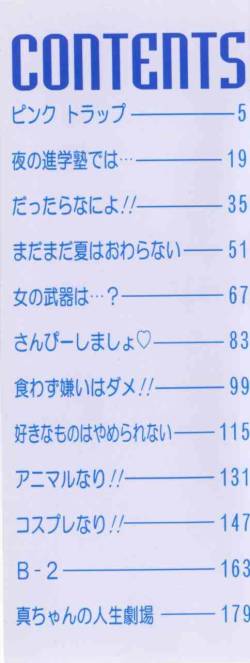 CONTENTS
ピンク トラップ――――5
夜の進学塾では…――――19
だったらなによ!!――――35
まだまだ夏はおわらない――51
女の武器は…？――――67
さんぴーしましょ♡――――83
食わず嫌いはダメ!!――――99
好きなものはやめられない――115
アニマルなり!!――――131
コスプレなり!!――――147
B-2――――――163
真ちゃんの人生劇場 ――179